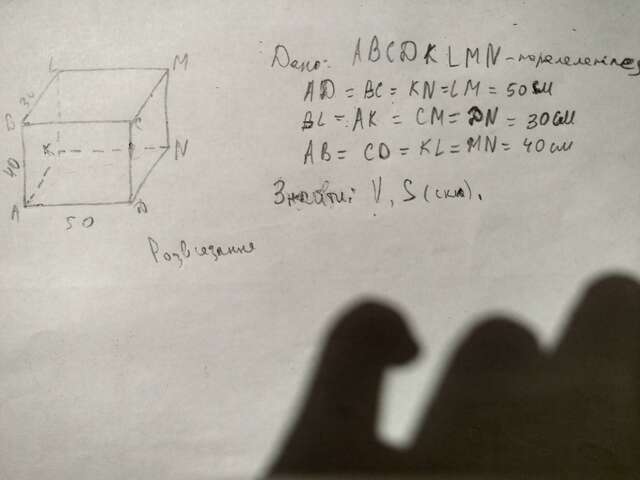 Дано: ABCDKLMN - паралелепіпед
AD = BC = KN = LM = 50 см
BL = AK = CM = DN = 30 см
AB = CD = KL = MN = 40 см
Знайти: V, S (скла).
Розв'язання
L
M
30
B
C
K
N
40
A
D
50